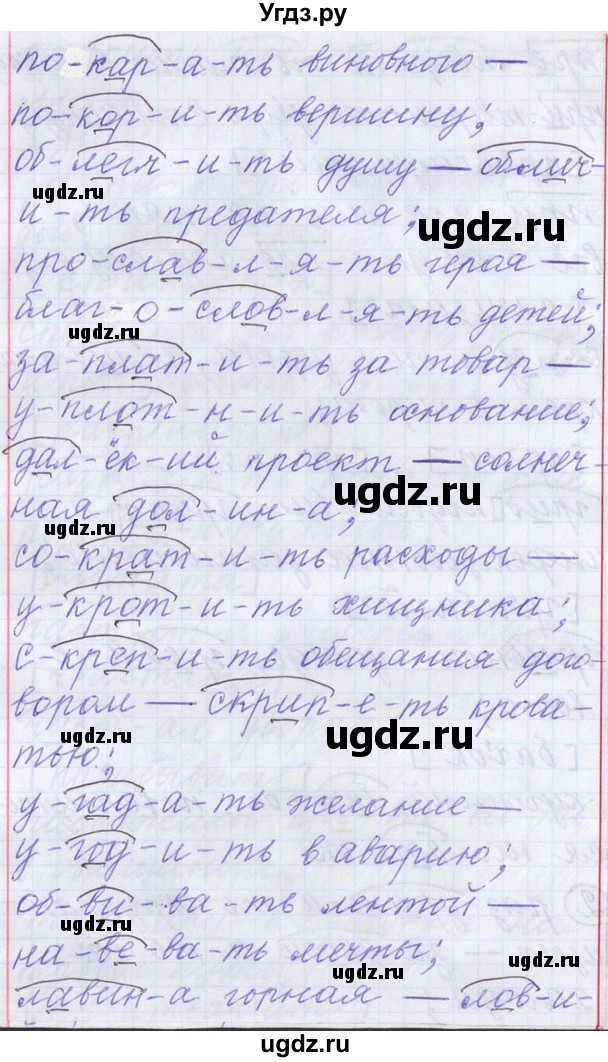 Угдз.ру
по-кар-а-ть виновного —
по-кор-и-ть вершину;
об-легч-и-ть душу — облич-
ugdz.ru
и-ть предателя;
ugdz.ru
про-слав-л-я-ть героя —
благ-о-слов-л-я-ть детей;
ugdz.ru
за-плат-и-ть за товар —
у-плот-н-и-ть основание;
дал-ёк-ий проект — солнеч-
ugdz.ru
ная дол-ин-а;
со-крат-и-ть расходы —
у-крот-и-ть хищника;
с-креп-и-ть обещания дого-
вором — скрип-е-ть крова-
ugdz.ru
тью;
у-гад-а-ть желание —
у-год-и-ть в аварию;
об-ви-ва-ть лентой —
ugdz.ru
на-ве-ва-ть мечты;
ugdz.ru
лавин-а горная — лов-и-
ugdz.ru
ugdz.ru